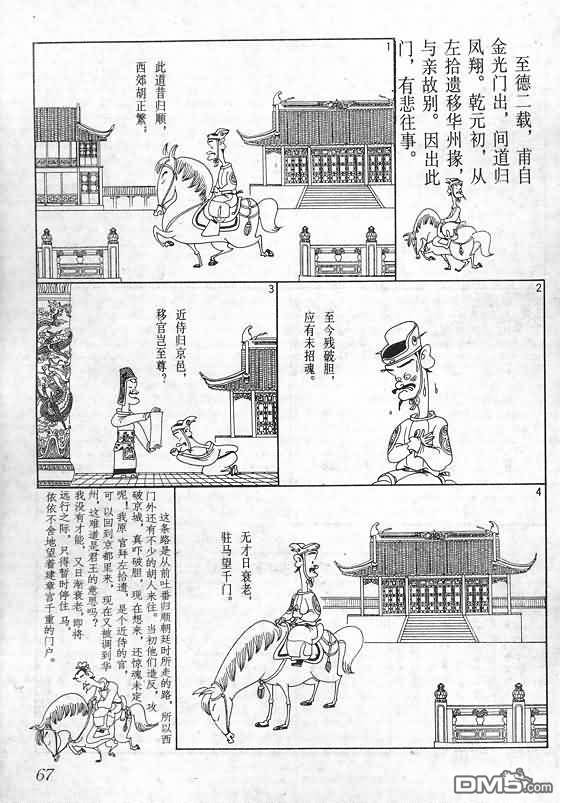 至德二载，甫自
金光门出，间道归
凤翔。乾元初，从
左拾遗移华州掾，
与亲故别。因出此
门，有悲往事。
1
此道昔归顺，
西郊胡正繁。
2
至今残破胆，
应有未招魂。
3
近侍归京邑，
移官岂至尊？
4
无才日衰老，
驻马望千门。
这条路是从前吐番归顺朝廷时所走的路，所以西
门外还有不少的胡人来往。当初他们造反，攻
破京城，真吓破胆，现在想来，还惊魂未定
呢！我原官拜左拾遗，是个近侍的官，
可以回到京都里来，现在又被调到华
州，这难道是君王的意思吗？
我没有才能，又日渐衰老。即将
远行之际，只得暂时停住马，
依依不舍地望着建章宫千重的门户。
67
DM5.com